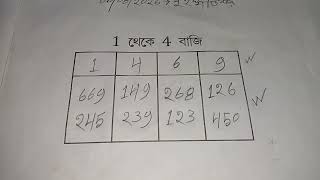 1 থেকে 4 বাজি
1 4 6 9
669 149 268 126
245 239 123 450